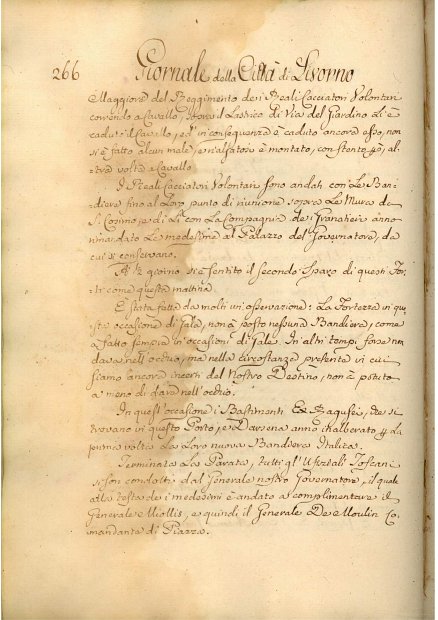 266 Giornale della Città di Livorno
Maggiore del Reggimento dei Reali Cacciatori Volontari
correndo a Cavallo, sopra il Lastrico di Via del Giardino li è
caduto il Cavallo, ed in conseguenza è caduto ancora esso, non
si è fatto alcun male, e rialzatosi è montato, con stento però, al-
tra volta a Cavallo
I Reali Cacciatori Volontari sono andati con le Ban-
diere fino al Loro punto di riunione sopra le Mura di
S. Cosimo, e di Lì con la Compagnia dei Granatieri anno
rimandato Le medesime al Palazzo del Governatore, da
cui si conservano.
A ½ giorno si è sentito il secondo Sparo di questi For-
ti come questa mattina.
È stata fatta da molti un'osservazione: La Fortezza in que-
sta occasione di Gala, non à posto nessuna Bandiera, come
à fatto sempre in occasioni di Gale. In altri tempi forse non
dava nell'occhio, ma nella circostanza presente in cui
siamo ancora incerti del Nostro Destino, non à potuto
a meno di dare nell'occhio.
In quest'occasione i Bastimenti Ex Ragusei, che si
trovano in questo Porto, e Darsena anno inalberato p. la
prima volta La Loro nuova Bandiera Italica.
Terminata La Parata, tutti gl'Ufiziali Toscani
si son condotti dal Generale nostro Governatore, il quale
alla testa dei medesimi è andato a complimentare il
Generale Miollis, e quindi il Generale De Moulin Co-
mandante di Piazza.